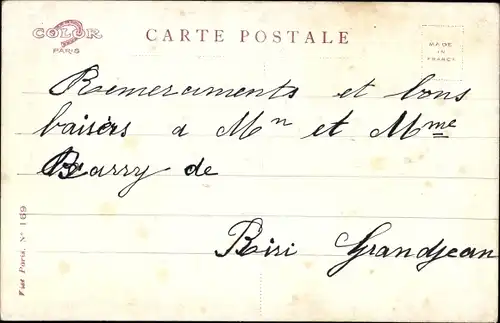 COLOR
PARIS
CARTE POSTALE
MADE
IN
FRANCE
Remerciments et bons
baisers a Mn et Mme
Barry de
Riri Grandjean
Visé Paris. No 169